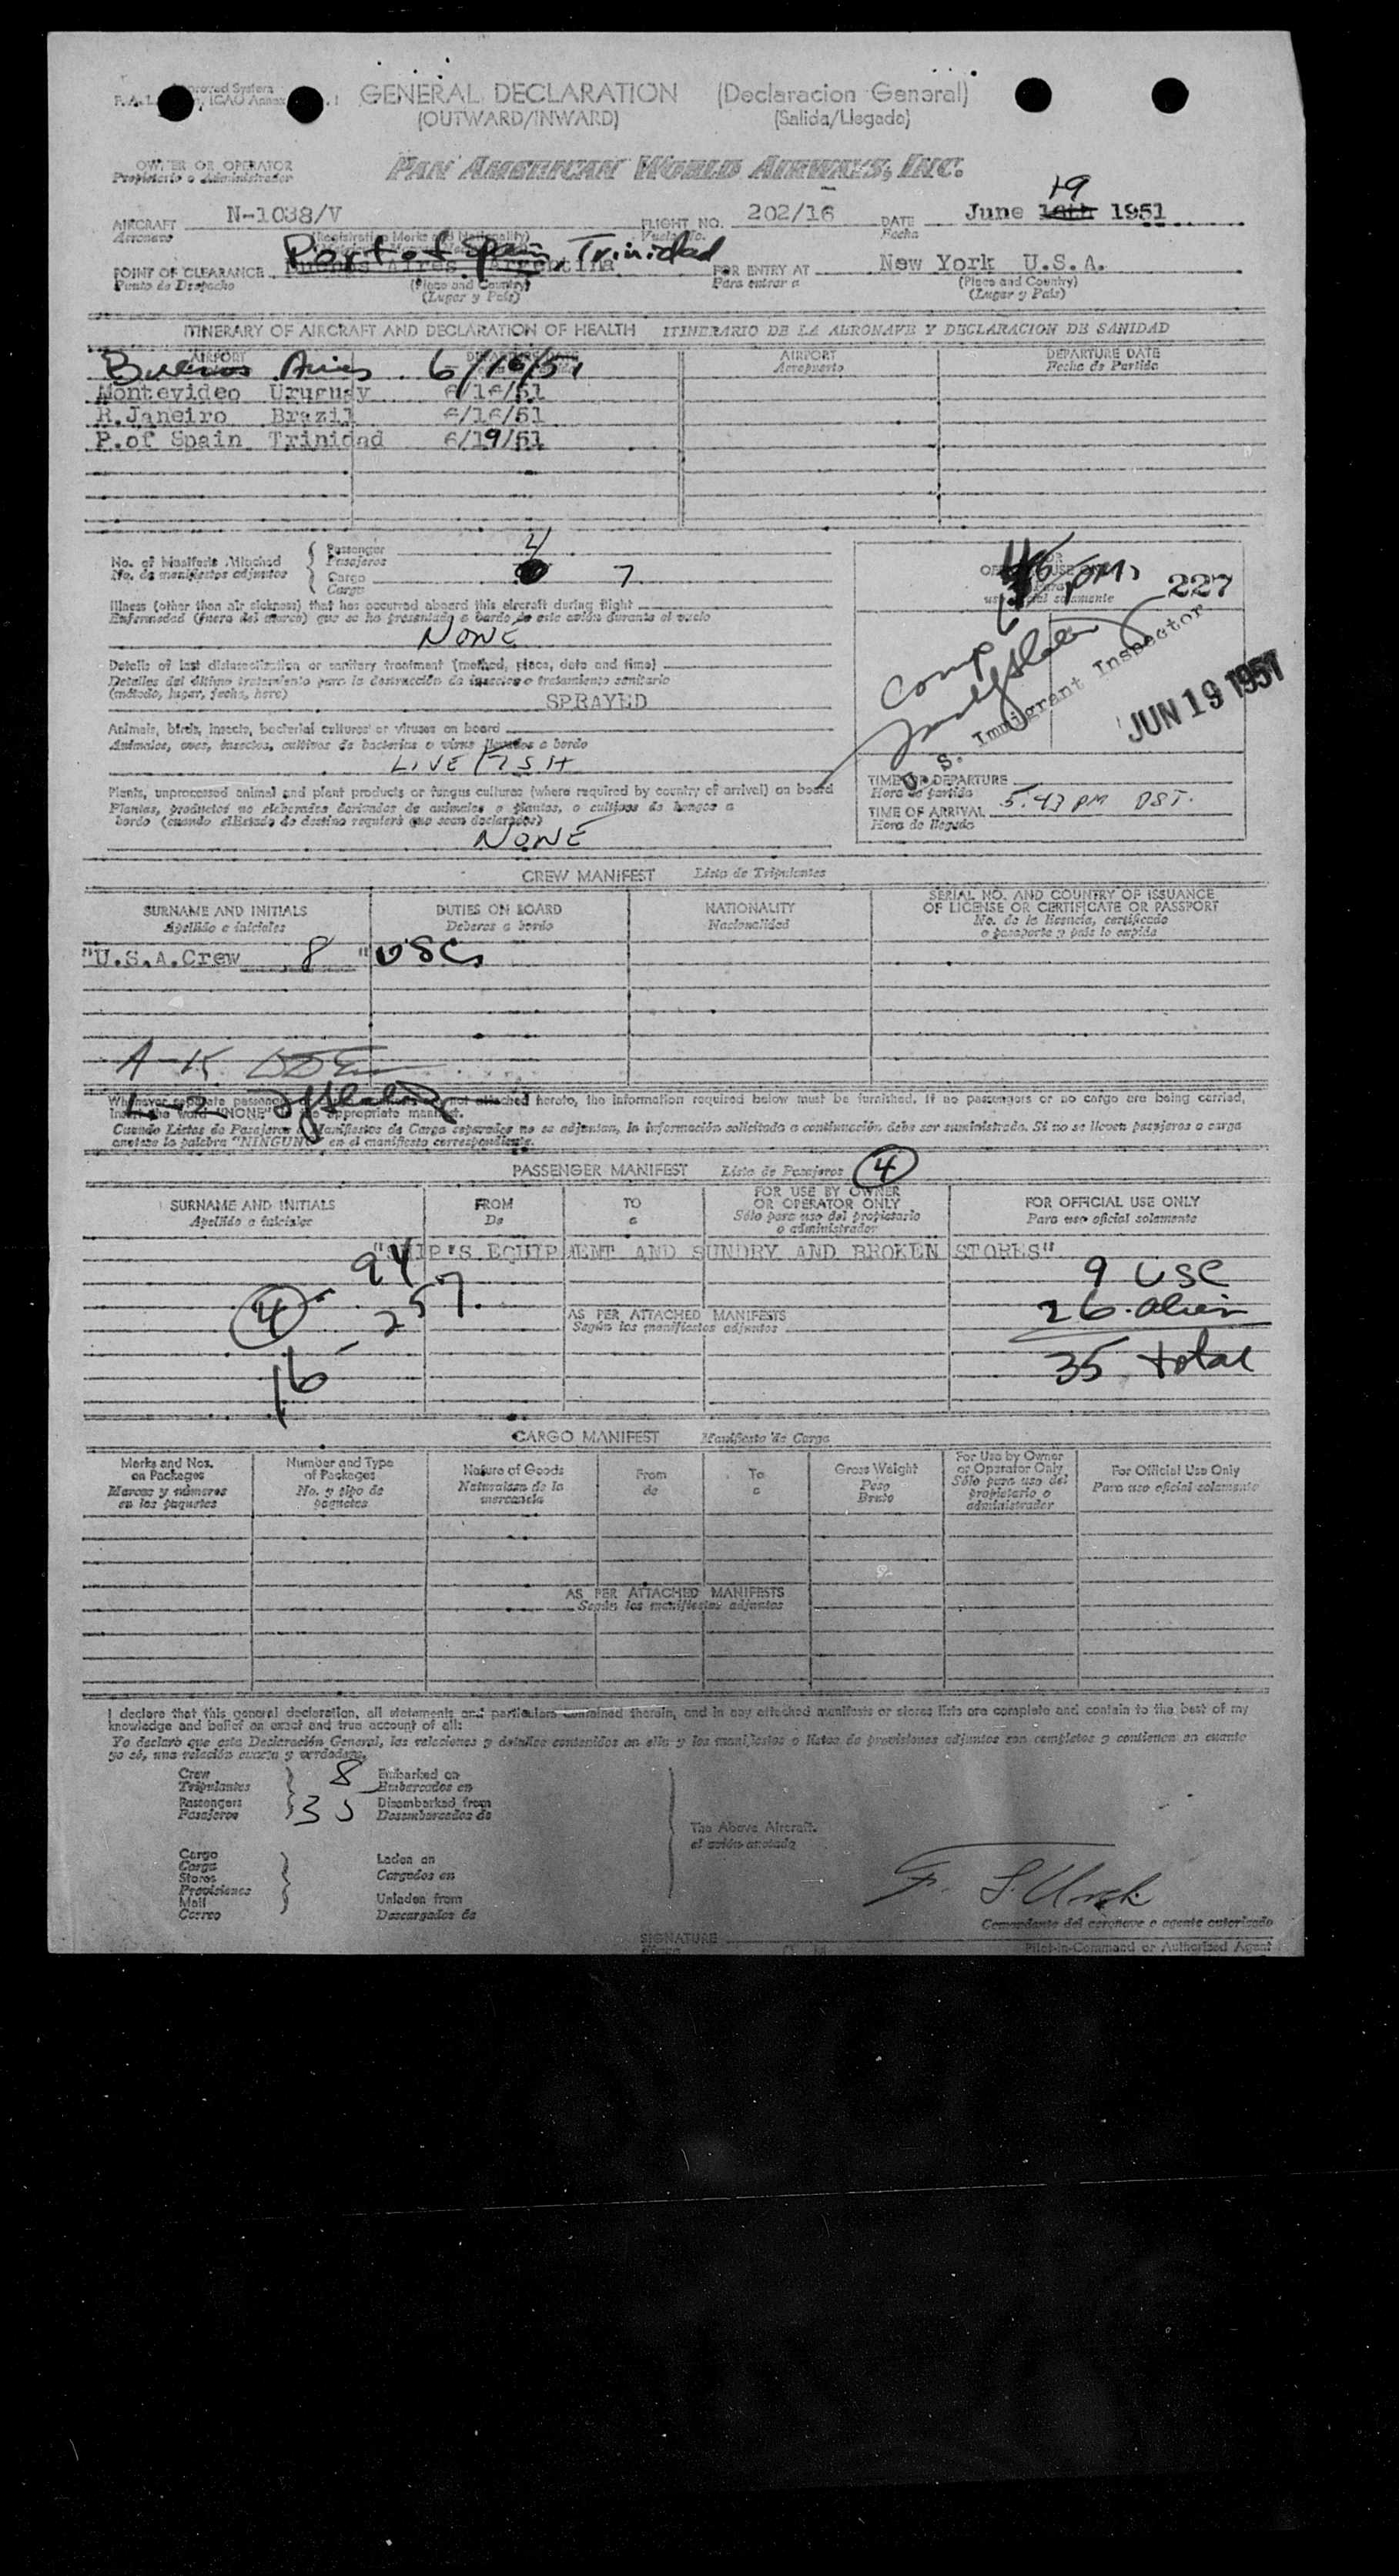 GENERAL DECLARATION (Declaracion General)
(OUTWARD/INWARD) (Salida/Llegada)
OWNER OR OPERATOR
Propietario o Administrador
PAN AMERICAN WORLD AIRWAYS, INC.
19
AIRCRAFT N-1038/V FLIGHT NO. 202/16 DATE June 16th 1951
Aeronave (Registration Marks and Nationality) Vuelo No. Fecha
Port of Spain, Trinidad
POINT OF CLEARANCE Buenos Aires Argentina FOR ENTRY AT New York U.S.A.
Punto de Despacho (Place and Country) Para entrar a (Place and Country)
(Lugar y País) (Lugar y País)
ITINERARY OF AIRCRAFT AND DECLARATION OF HEALTH ITINERARIO DE LA AERONAVE Y DECLARACION DE SANIDAD
AIRPORT DEPARTURE DATE AIRPORT DEPARTURE DATE
Aeropuerto Fecha de Partida
Buenos Aires 6/16/51
Montevideo Uruguay 6/16/51
R.Janeiro Brazil 6/16/51
P.of Spain Trinidad 6/19/51
No. of Manifests Attached Passenger 4
No. de manifiestos adjuntos Pasajeros
Cargo 7
Carga
Illness (other than air sickness) that has occurred aboard this aircraft during flight
Enfermedad (fuera del mareo) que se ha presentado a bordo de este avión durante el vuelo
NONE
Details of last disinsectisation or sanitary treatment (method, place, date and time)
Detalles del último tratamiento para la destrucción de insectos o tratamiento sanitario
(método, lugar, fecha, hora)
SPRAYED
Animals, birds, insects, bacterial cultures or viruses on board
Animales, aves, insectos, cultivos de bacterias o virus llevados a bordo
LIVE FISH
Plants, unprocessed animal and plant products or fungus cultures (where required by country of arrival) on board
Plantas, productos no elaborados derivados de animales o plantas, o cultivos de hongos a
bordo (cuando el Estado de destino requiera que sean declarados)
NONE
PM. 227
Comp
U. S. Immigrant Inspector
JUN 19 1951
TIME OF DEPARTURE
Hora de partida
TIME OF ARRIVAL 5:43 PM DST.
Hora de llegada
CREW MANIFEST Lista de Tripulantes
SURNAME AND INITIALS DUTIES ON BOARD NATIONALITY SERIAL NO. AND COUNTRY OF ISSUANCE
OF LICENSE OR CERTIFICATE OR PASSPORT
Apellido e iniciales Deberes a bordo Nacionalidad No. de la licencia, certificado
o pasaporte y país lo expida
"U.S.A.Crew 8 " USC
A-15
L-2
Whenever separate passenger not attached hereto, the information required below must be furnished. If no passengers or no cargo are being carried,
insert the word "NONE" in the appropriate manifest.
Cuando Listas de Pasajeros o Manifiestos de Carga separados no se adjuntan, la información solicitada a continuación debe ser suministrada. Si no se lleven pasajeros o carga
anotese la palabra "NINGUNO" en el manifiesto correspondiente.
PASSENGER MANIFEST Lista de Pasajeros 4
SURNAME AND INITIALS FROM TO FOR USE BY OWNER
OR OPERATOR ONLY FOR OFFICIAL USE ONLY
Apellido e iniciales De a Sólo para uso del propietario
o administrador Para uso oficial solamente
"SHIP'S EQUIPMENT AND SUNDRY AND BROKEN STORES"
94 9 USC
4 - 257 26 alien
AS PER ATTACHED MANIFESTS
Según los manifiestos adjuntos
16 35 total
CARGO MANIFEST Manifiesto de Carga
Marks and Nos.
on Packages
Marcas y números
en los paquetes
Number and Type
of Packages
No. y tipo de
paquetes
Nature of Goods
Naturaleza de la
mercancía
From
de
To
a
Gross Weight
Peso
Bruto
For Use by Owner
or Operator Only
Sólo para uso del
propietario o
administrador
For Official Use Only
Para uso oficial solamente
AS PER ATTACHED MANIFESTS
Según los manifiestos adjuntos
I declare that this general declaration, all statements and particulars contained therein, and in any attached manifests or stores lists are complete and contain to the best of my
knowledge and belief an exact and true account of all:
Yo declaro que esta Declaración General, las relaciones y detalles contenidos en ella y los manifiestos o listas de provisiones adjuntos son completos y contienen en cuanto
yo sé, una relación exacta y verdadera.
Crew 8 Embarked on
Tripulantes Embarcados en
Passengers 35 Disembarked from
Pasajeros Desembarcados de
The Above Aircraft.
el avión anotado
Cargo
Carga
Stores
Provisiones
Mail
Correo
Laden on
Cargados en
Unladen from
Descargados de
Comandante del aeronave o agente autorizado
SIGNATURE
Pilot-in-Command or Authorized Agent